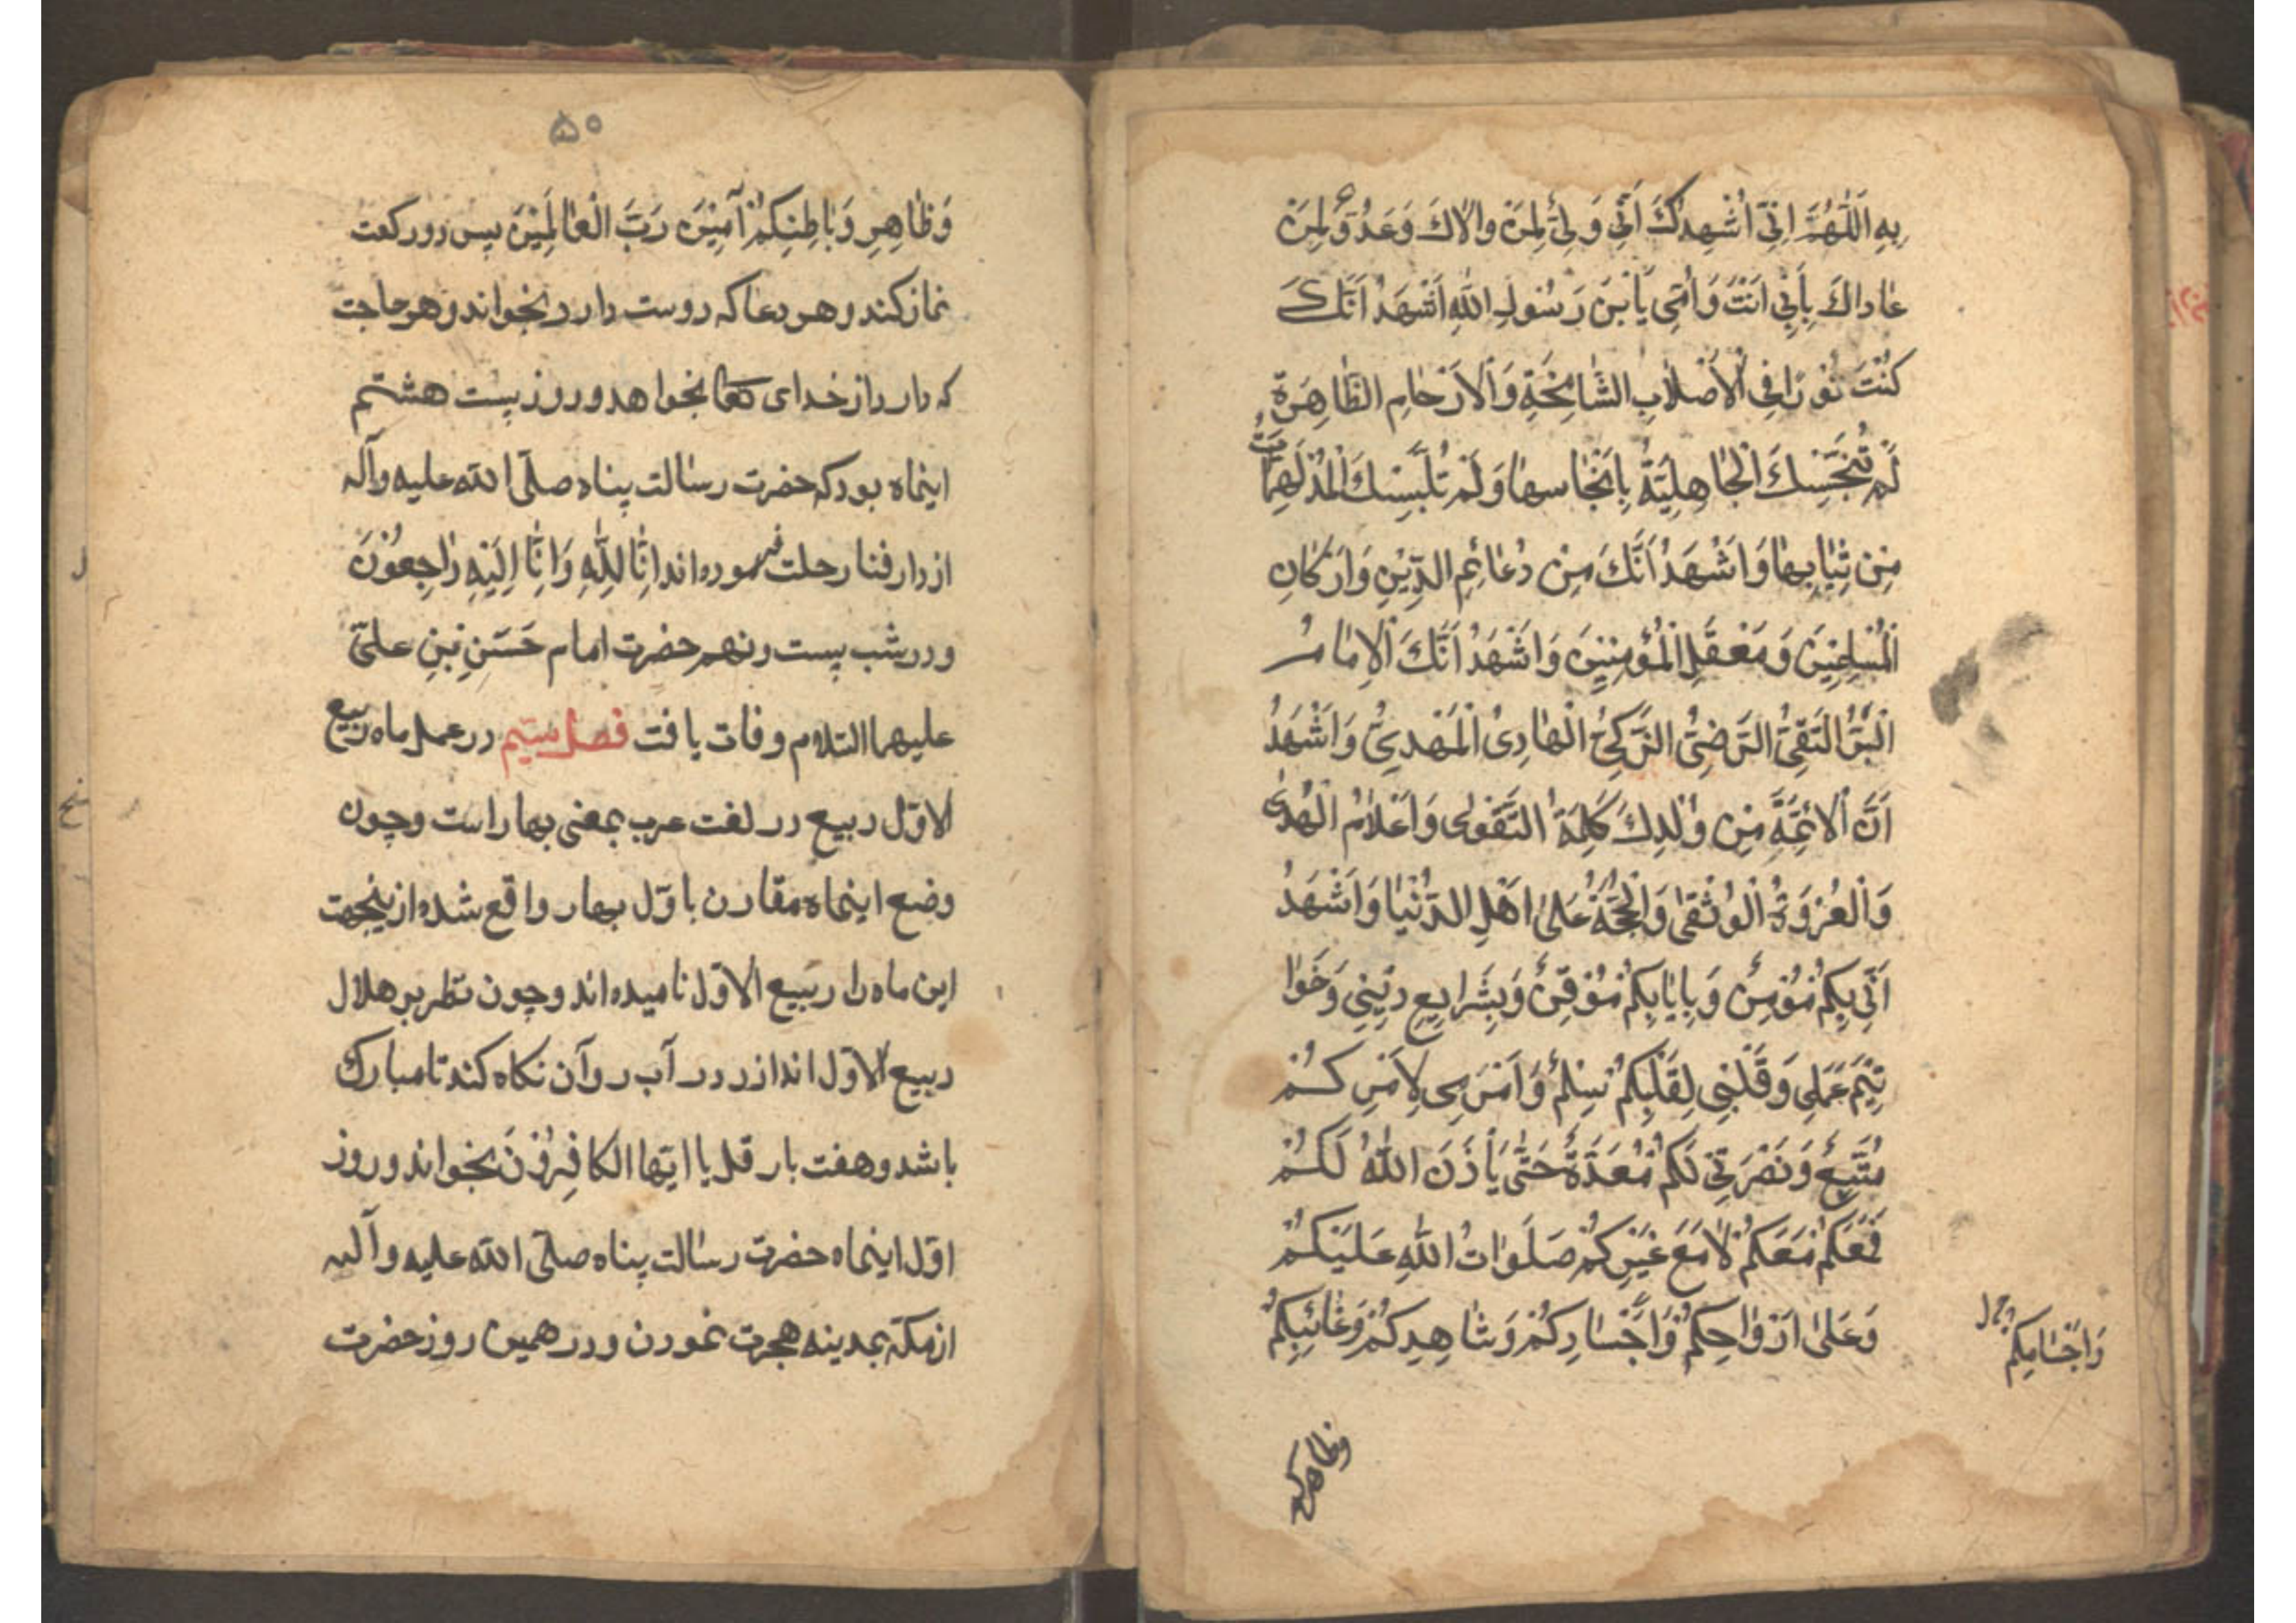 بِهِ اَللّٰهُمَّ اِنّی اُشْهِدُكَ اَنّی وَلِیٌّ لِمَنْ والاكَ وَعَدُوٌّ لِمَنْ
عاداكَ بِاَبی اَنْتَ وَاُمّی یَا بْنَ رَسُولِ اللهِ اَشْهَدُ اَنَّكَ
كُنْتَ نُوْرًا فِی الْاَصْلابِ الشّامِخَةِ وَالْاَرْحامِ الطّاهِرَةِ
لَمْ تُنَجِّسْكَ الْجاهِلِیَّةُ بِاَنْجاسِها وَلَمْ تُلَبِّسْكَ الْمُدْلَهِمّاتُ
مِنْ ثِیابِها وَاَشْهَدُ اَنَّكَ مِنْ دَعائِمِ الدّیْنِ وَاَرْكانِ
الْمُسْلِمِیْنَ وَمَعْقَلِ الْمُؤْمِنینَ وَاَشْهَدُ اَنَّكَ الْاِمامُ
الْبَرُّ التَّقِیُّ الرَّضِیُّ الزَّكِیُّ الْهادِی الْمَهْدِیُّ وَاَشْهَدُ
اَنَّ الْاَئِمَّةَ مِنْ وُلْدِكَ كَلِمَةُ التَّقْوٰی وَاَعْلامُ الْهُدٰی
وَالْعُرْوَةُ الْوُثْقٰی وَالْحُجَّةُ عَلٰی اَهْلِ الدُّنْیا وَاَشْهَدُ
اَنّی بِكُمْ مُؤْمِنٌ وَبِاِیابِكُمْ مُوْقِنٌ وَبِشَرایِعِ دیْنی وَخَوا
تِیْمِ عَمَلی وَقَلْبی لِقَلْبِكُمْ سِلْمٌ وَاَمْری لِاَمْرِكُمْ
مُتَّبِعٌ وَنَصْرَتی لَكُمْ مُعَدَّةٌ حَتّٰی یَأْذَنَ اللهُ لَكُمْ
فَمَعَكُمْ مَعَكُمْ لامَعَ غَیْرِكُمْ صَلَواتُ اللهِ عَلَیْكُمْ
وَعَلٰی اَرْواحِكُمْ وَاَجْسادِكُمْ وَشاهِدِكُمْ وَغائِبِكُمْ
وَاَجْسامِكُمْ
وظاهركم
۵۰
وَظاهِرِ وَباطِنِكُمْ آمِیْنَ رَبَّ الْعالَمِیْنَ پس دو ركعت
نماز كند و هر دعا كه دوست دارد بخواند و هر حاجت
كه دارد از خدای تعالی بخواهد و روز بیست هشتم
اینماه بود كه حضرت رسالت پناه صلّی الله علیه وآله
از دار فنا رحلت فرموده اند اِنّا لِلّٰهِ وَاِنّا اِلَیْهِ راجِعُوْنَ
و در شب بیست و نهم حضرت امام حَسَنِ بْنِ علیّ
علیهما السّلام وفات یافت فصل سیّم در عمل ماه ربیع
الاوّل ربیع در لغت عرب بمعنی بهار است و چون
وضع اینماه مقارن باوّل بهار واقع شده ازینجهت
این ماه را ربیع الاوّل نامیده اند و چون نظر بر هلال
ربیع الاوّل اندازد در آب روان نكاه كند تا مبارك
باشد و هفت بار قل یا ایّها الكافِرُوْنَ بخواند و روز
اوّل اینماه حضرت رسالت پناه صلّی الله علیه وآله
از مكّه بمدینه هجرت نمودن و در همین روز حضرت